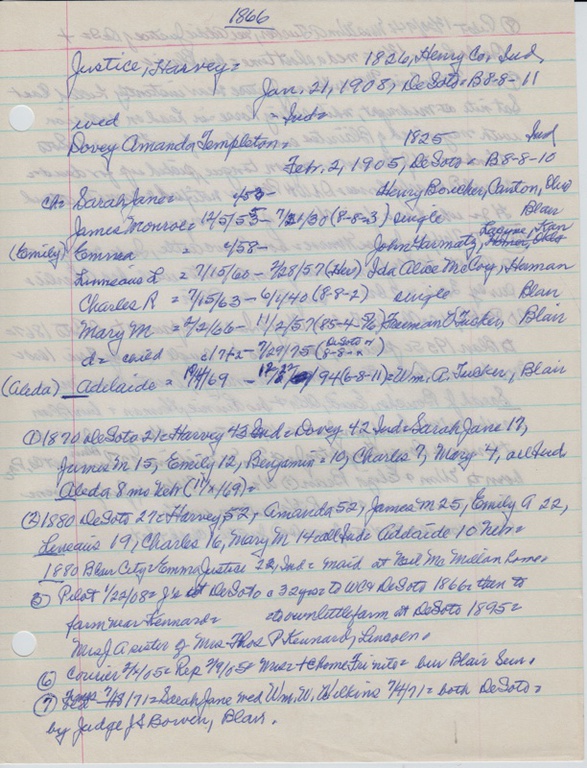 1866
Justice, Harvey = 1826, Henry Co, Ind,
Jan. 21, 1908, DeSoto = B8-8-11
wed = Ind =
Dovey Amanda Templeton = 1825 Ind
Feb. 2, 1905, DeSoto = B8-8-10
ch = Sarah Jane = 453- Henry Boucher, Canton,
James Monroe = 12/5/55 - 7/21/30 (8-8-3) single Blair
(Emily) Emma = 4/58 - John Harmatz, Kan
Linneous L = 7/15/60 - 2/28/57 (Her) Ida Alice McCoy, Herman
Charles R = 7/15/63 - 6/1/40 (8-8-2) single Blair
Mary M = 2/2/66 - 11/2/57 (85-4- Freeman O Tucker, Blair
d = earied c1872 - 7/29/75 (DeSoto 8-8-
(Aleda) Adelaide = /69 - /94 (6-8-11) = Wm. A. Tucker, Blair
(1) 1870 DeSoto 21 = Harvey 43 Ind = Dovey 42 Ind = Sarah Jane 17,
James M 15, Emily 12, Benjamin = 10, Charles 7, Mary 4, all Ind
Aleda 8 mo Nebr (11/69) =
(2) 1880 DeSoto 27 = Harvey 52, Amanda 52, James M 25, Emily A 22,
Lineaus 19, Charles 16, Mary M 14 all Ind = Addaide 10 Neb =
1880 Blair City = Emma Justice 22, Ind = maid at Neil Mc Millan home =
5) Pilot 1/22/08 = J's at DeSoto = 32 yrs = to WC & DeSoto 1866 = then to
farm near Kennard = to own little farm at DeSoto 1895 =
Mrs J. A sister of Mrs. Thos P. Kennard, Lincoln.
(6) Courier 2/4/05 = Rep 2/9/05 = Mrs J + home = bur Blair Sun.
(7) 7/13/71 = Sarah Jane med Wm. W. Wilkins 7/4/71 = both DeSoto =
by Judge J S Bowen, Blair.